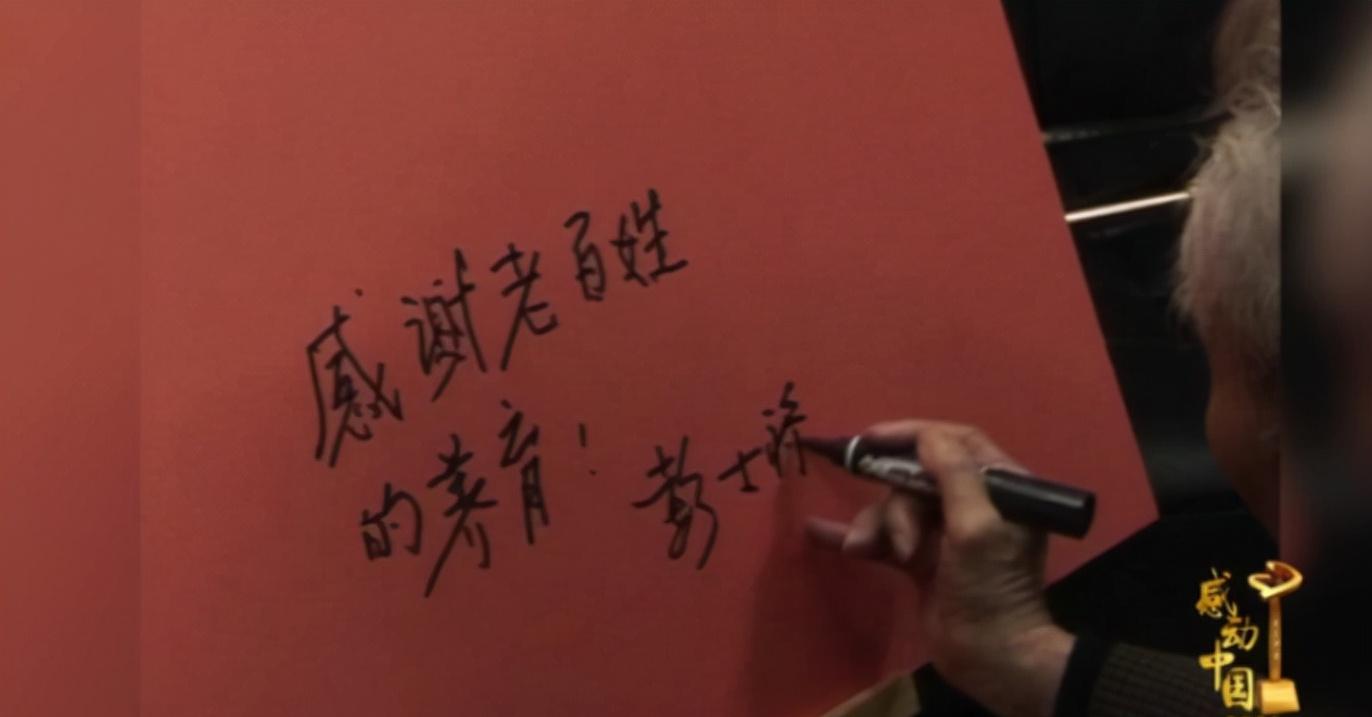 感谢老百姓
的养育！彭士禄
感动
中国